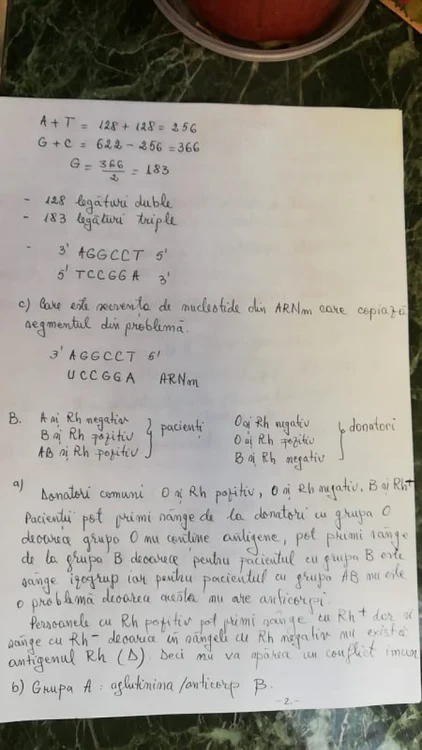 A + T = 128 + 128 = 256
G + C = 622 - 256 = 366
G = 366/2 = 183
- 128 legături duble
- 183 legături triple
- 3' AGGCCT 5'
5' TCCGGA 3'
c) Care este secvența de nucleotide din ARNm care copiază
segmentul din problemă.
3' AGGCCT 5'
UCCGGA ARNm
B. A și Rh negativ } pacienți O și Rh negativ } donatori
B și Rh pozitiv O și Rh pozitiv
AB și Rh pozitiv B și Rh negativ
a) Donatori comuni O și Rh pozitiv, O și Rh negativ. B și Rh+
Pacienții pot primi sânge de la donatori cu grupa O
deoarece grupa O nu conține antigene, pot primi sânge
de la grupa B deoarece pentru pacientul cu grupa B este
sânge izogrup iar pentru pacientul cu grupa AB nu este
o problemă deoarece acesta nu are anticorpi.
Persoanele cu Rh pozitiv pot primi sânge cu Rh+ dar și
sânge cu Rh- deoarece în sângele cu Rh negativ nu există
antigenul Rh (D). Deci nu va apărea un conflict imun
b) Grupa A : aglutinina /anticorp B.
- 2. -